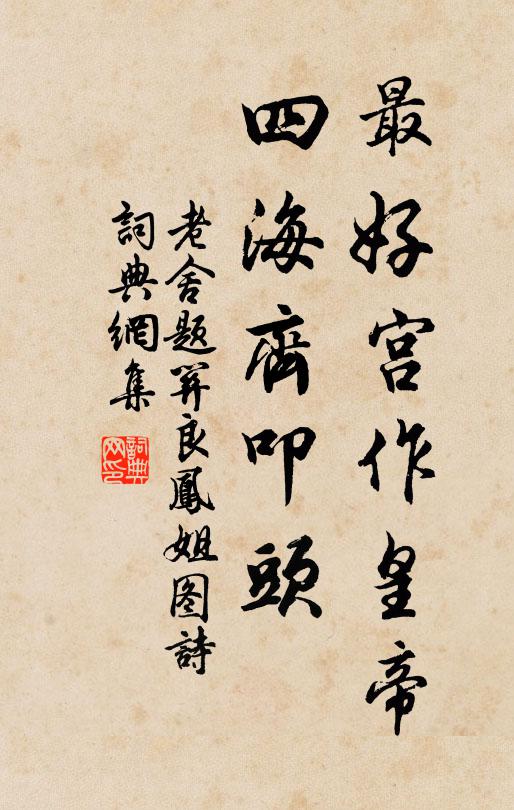 最好宫作皇帝
四海齊叩頭
老舍題羿良鳳姐图詩
詞典網集
詞典
网印